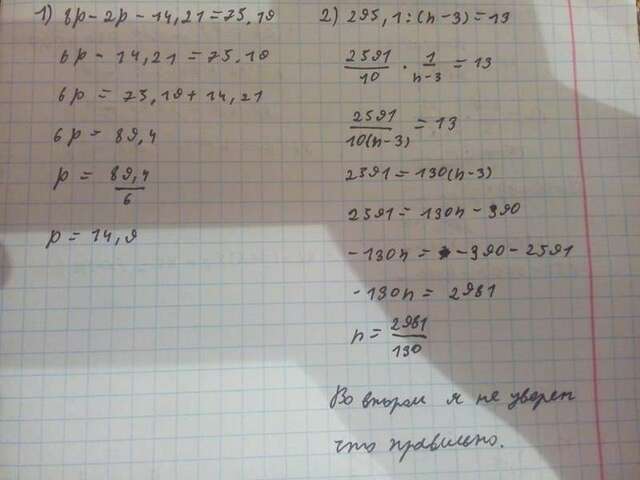 1) 8p - 2p - 14,21 = 75.19
6p - 14,21 = 75.19
6p = 75,19 + 14,21
6p = 89,4
p = 89,4/6
p = 14,9
2) 295,1 : (n-3) = 13
2591/10 · 1/n-3 = 13
2591/10(n-3) = 13
2591 = 130(n-3)
2591 = 130n - 390
-130n = -390-2591
-130n = 2981
n = 2981/130
Во втором я не уверен
что правильно.